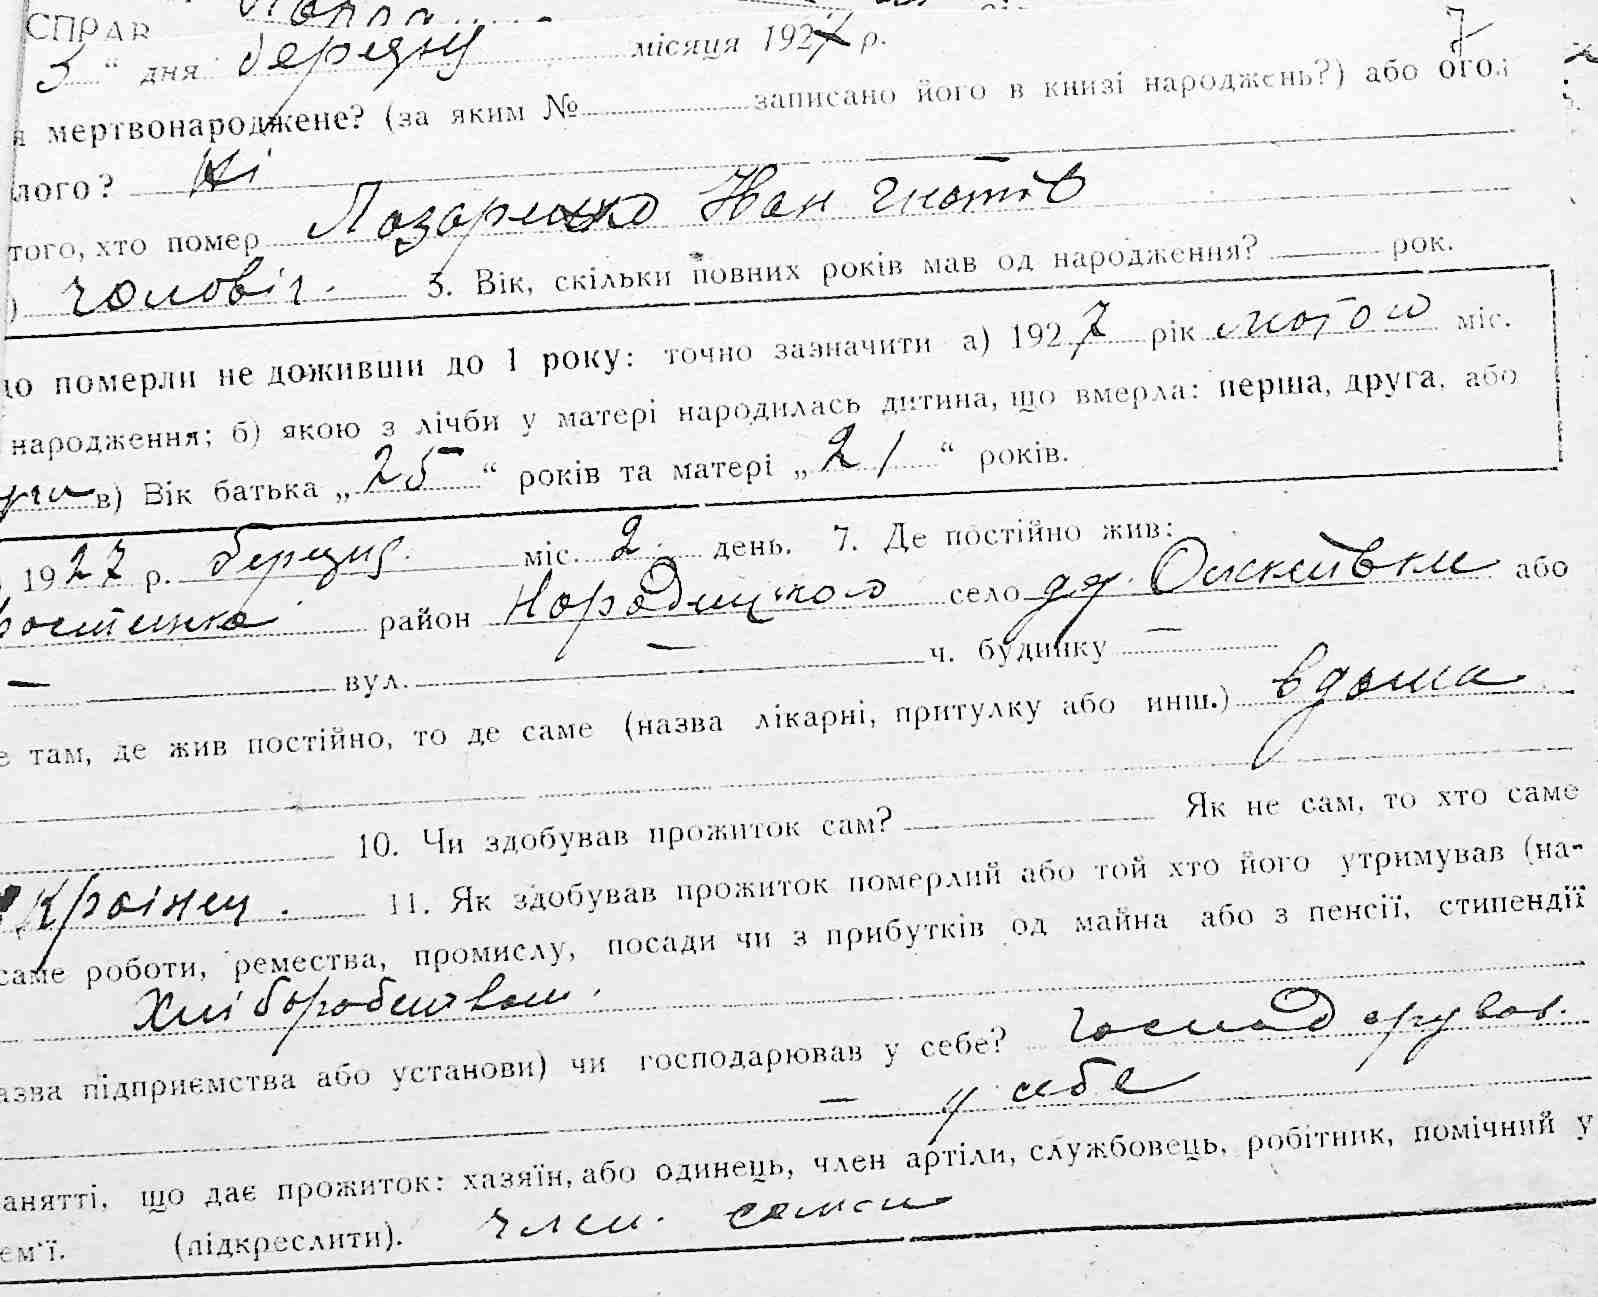 СПРАВ
3 “ дня березня місяця 1927 р. 7
я мертвонароджене? (за яким № записано його в книзі народжень?) або огол
лого? Ні
того, хто помер Лазаренко Іван Гнатів
) чоловіч. 3. Вік, скільки повних років мав од народження? — рок.
що померли не доживши до 1 року: точно зазначити а) 1927 рік лютого міс.
народження; б) якою з лічби у матері народилась дитина, що вмерла: перша, друга, або
в) Вік батька „25“ років та матері „21“ років.
1927 р. березня міс. 2 день. 7. Де постійно жив:
район Народицького село або
— вул. — ч. будинку —
е там, де жив постійно, то де саме (назва лікарні, притулку або инш.) вдома
10. Чи здобував прожиток сам? Як не сам, то хто саме
Українец. 11. Як здобував прожиток померлий або той хто його утримував (на-
саме роботи, ремества, промислу, посади чи з прибутків од майна або з пенсії, стипендії
Хліборобством.
азва підприємства або установи) чи господарював у себе? господарував
— у себе
анятті, що дає прожиток: хазяїн, або одинець, член артіли, службовець, робітник, помічний у
ем'ї. (підкреслити). член. семьи